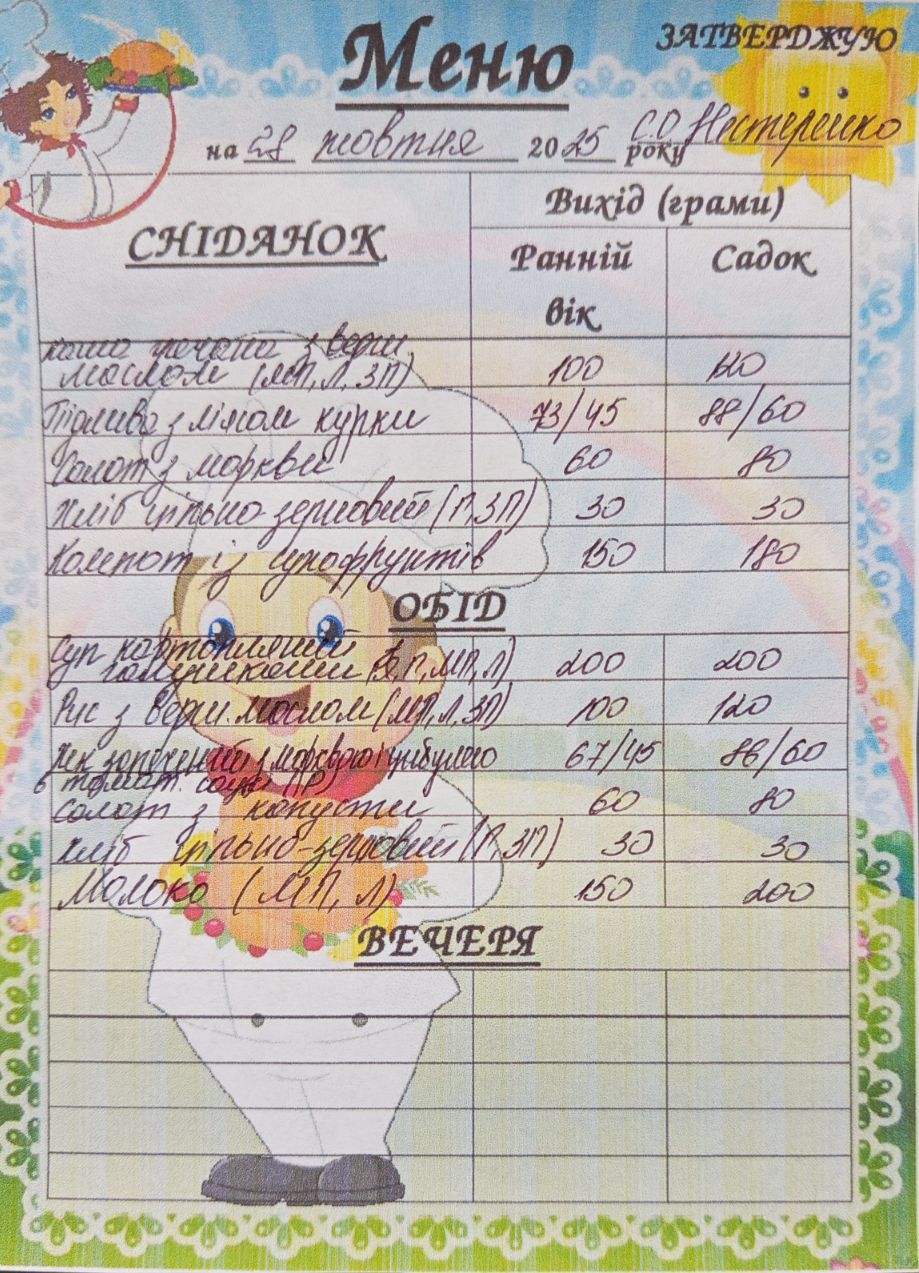 Меню
ЗАТВЕРДЖУЮ
на 28 жовтня 2025 року С.О Нестеренко
СНІДАНОК
Вихід (грами)
Ранній вік
Садок
каша гречана з верш.
маслом (МП, Л, ЗП) 100 120
Підлива з м'ясом курки 73/45 88/60
Салат з моркви 60 80
Хліб цільно зерновий (Г, ЗП) 30 30
Компот із сухофруктів 150 180
ОБІД
Суп картопляний з
галушками (Я, Г, МП, Л) 200 200
Рис з верш. маслом (МП, Л, ЗП) 100 120
Хек запечений з морквою і цибулею 67/45 86/60
в томат. соусі (Р)
Салат з капусти 60 80
Хліб цільно-зерновий (Г, ЗП) 30 30
Молоко (МП, Л) 150 200
ВЕЧЕРЯ